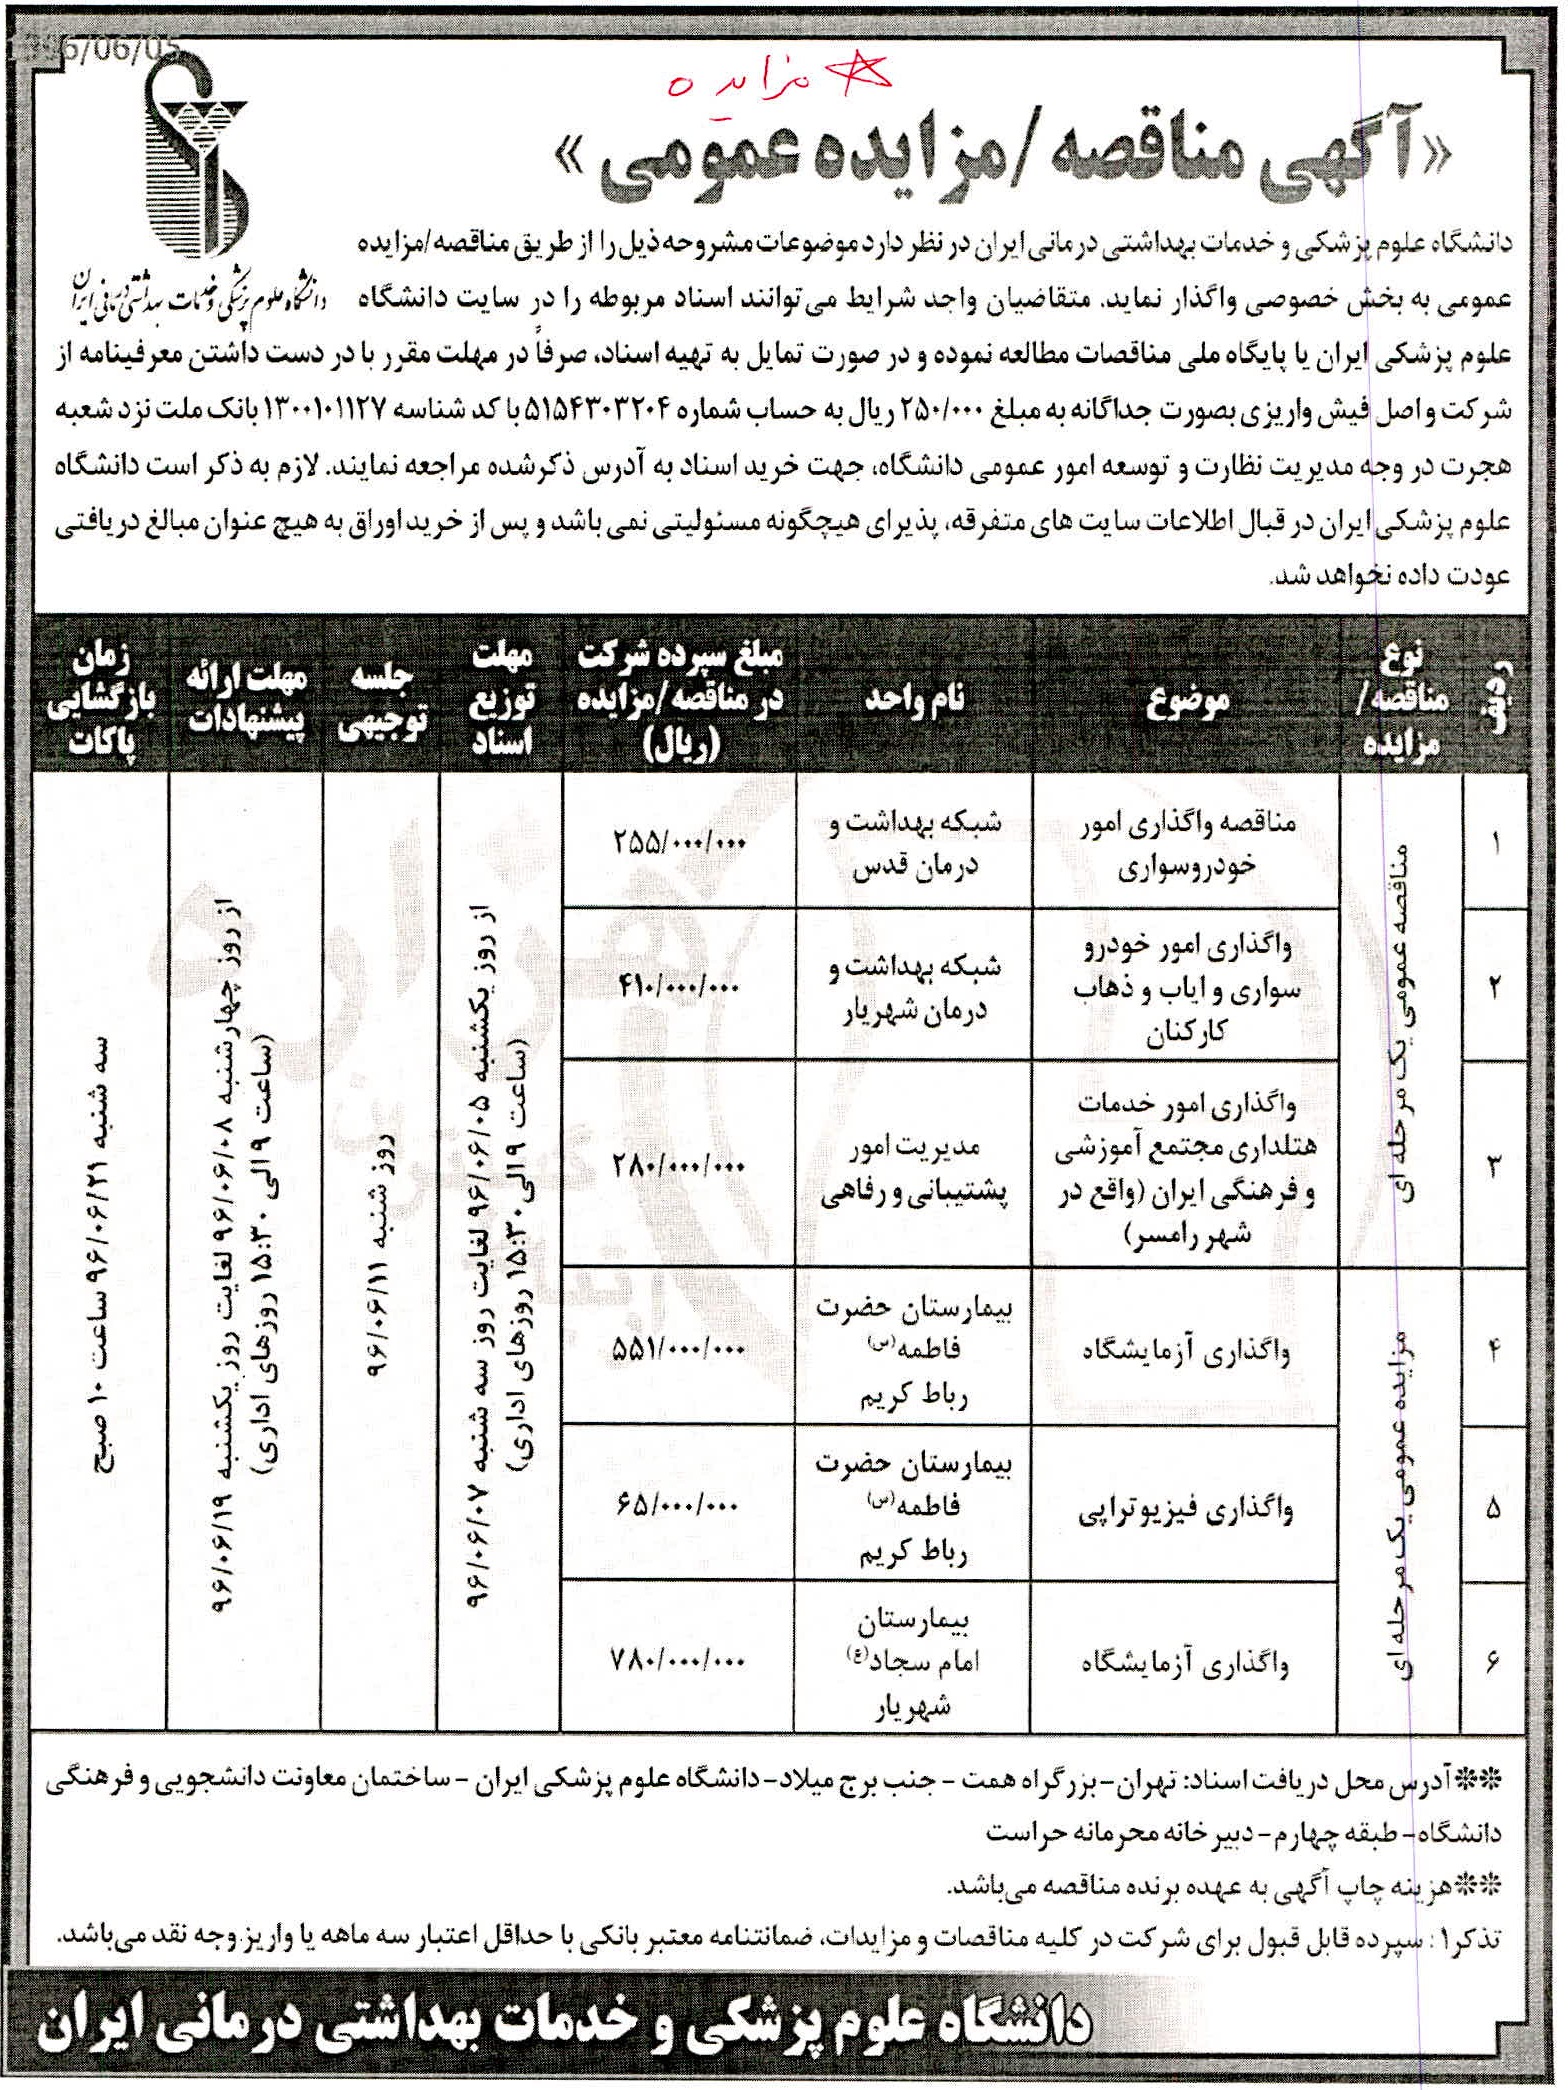 1396/06/05
مزایده
«آگهی مناقصه/مزایده عمومی»
دانشگاه علوم پزشکی و خدمات بهداشتی درمانی ایران
دانشگاه علوم پزشکی و خدمات بهداشتی درمانی ایران در نظر دارد موضوعات مشروحه ذیل را از طریق مناقصه/مزایده
عمومی به بخش خصوصی واگذار نماید. متقاضیان واجد شرایط می‌توانند اسناد مربوطه را در سایت دانشگاه
علوم پزشکی ایران یا پایگاه ملی مناقصات مطالعه نموده و در صورت تمایل به تهیه اسناد، صرفاً در مهلت مقرر با در دست داشتن معرفینامه از
شرکت و اصل فیش واریزی بصورت جداگانه به مبلغ ۲۵۰/۰۰۰ ریال به حساب شماره ۵۱۵۴۳۰۳۲۰۴ با کد شناسه ۱۳۰۰۱۰۱۱۲۷ بانک ملت نزد شعبه
هجرت در وجه مدیریت نظارت و توسعه امور عمومی دانشگاه، جهت خرید اسناد به آدرس ذکرشده مراجعه نمایند. لازم به ذکر است دانشگاه
علوم پزشکی ایران در قبال اطلاعات سایت های متفرقه، پذیرای هیچگونه مسئولیتی نمی باشد و پس از خرید اوراق به هیچ عنوان مبالغ دریافتی
عودت داده نخواهد شد.
ردیف
نوع
مناقصه/
مزایده
موضوع
نام واحد
مبلغ سپرده شرکت
در مناقصه/مزایده
(ریال)
مهلت
توزیع
اسناد
جلسه
توجیهی
مهلت ارائه
پیشنهادات
زمان
بازگشایی
پاکات
۱
مناقصه عمومی یک مرحله ای
مناقصه واگذاری امور
خودروسواری
شبکه بهداشت و
درمان قدس
۲۵۵/۰۰۰/۰۰۰
از روز یکشنبه ۹۶/۰۶/۰۵ لغایت روز سه شنبه ۹۶/۰۶/۰۷
(ساعت ۹ الی ۱۵:۳۰ روزهای اداری)
روز شنبه ۹۶/۰۶/۱۱
از روز چهارشنبه ۹۶/۰۶/۰۸ لغایت روز یکشنبه ۹۶/۰۶/۱۹
(ساعت ۹ الی ۱۵:۳۰ روزهای اداری)
سه شنبه ۹۶/۰۶/۲۱ ساعت ۱۰ صبح
۲
واگذاری امور خودرو
سواری و ایاب و ذهاب
کارکنان
شبکه بهداشت و
درمان شهریار
۴۱۰/۰۰۰/۰۰۰
۳
واگذاری امور خدمات
هتلداری مجتمع آموزشی
و فرهنگی ایران (واقع در
شهر رامسر)
مدیریت امور
پشتیبانی و رفاهی
۲۸۰/۰۰۰/۰۰۰
۴
مزایده عمومی یک مرحله ای
واگذاری آزمایشگاه
بیمارستان حضرت
فاطمه (س)
رباط کریم
۵۵۱/۰۰۰/۰۰۰
۵
واگذاری فیزیوتراپی
بیمارستان حضرت
فاطمه (س)
رباط کریم
۶۵/۰۰۰/۰۰۰
۶
واگذاری آزمایشگاه
بیمارستان
امام سجاد (ع)
شهریار
۷۸۰/۰۰۰/۰۰۰
**آدرس محل دریافت اسناد: تهران-بزرگراه همت - جنب برج میلاد-دانشگاه علوم پزشکی ایران -ساختمان معاونت دانشجویی و فرهنگی
دانشگاه- طبقه چهارم-دبیر خانه محرمانه حراست
**هزینه چاپ آگهی به عهده برنده مناقصه می‌باشد.
تذکر۱: سپرده قابل قبول برای شرکت در کلیه مناقصات و مزایدات، ضمانتنامه معتبر بانکی با حداقل اعتبار سه ماهه یا واریز وجه نقد می‌باشد.
دانشگاه علوم پزشکی و خدمات بهداشتی درمانی ایران